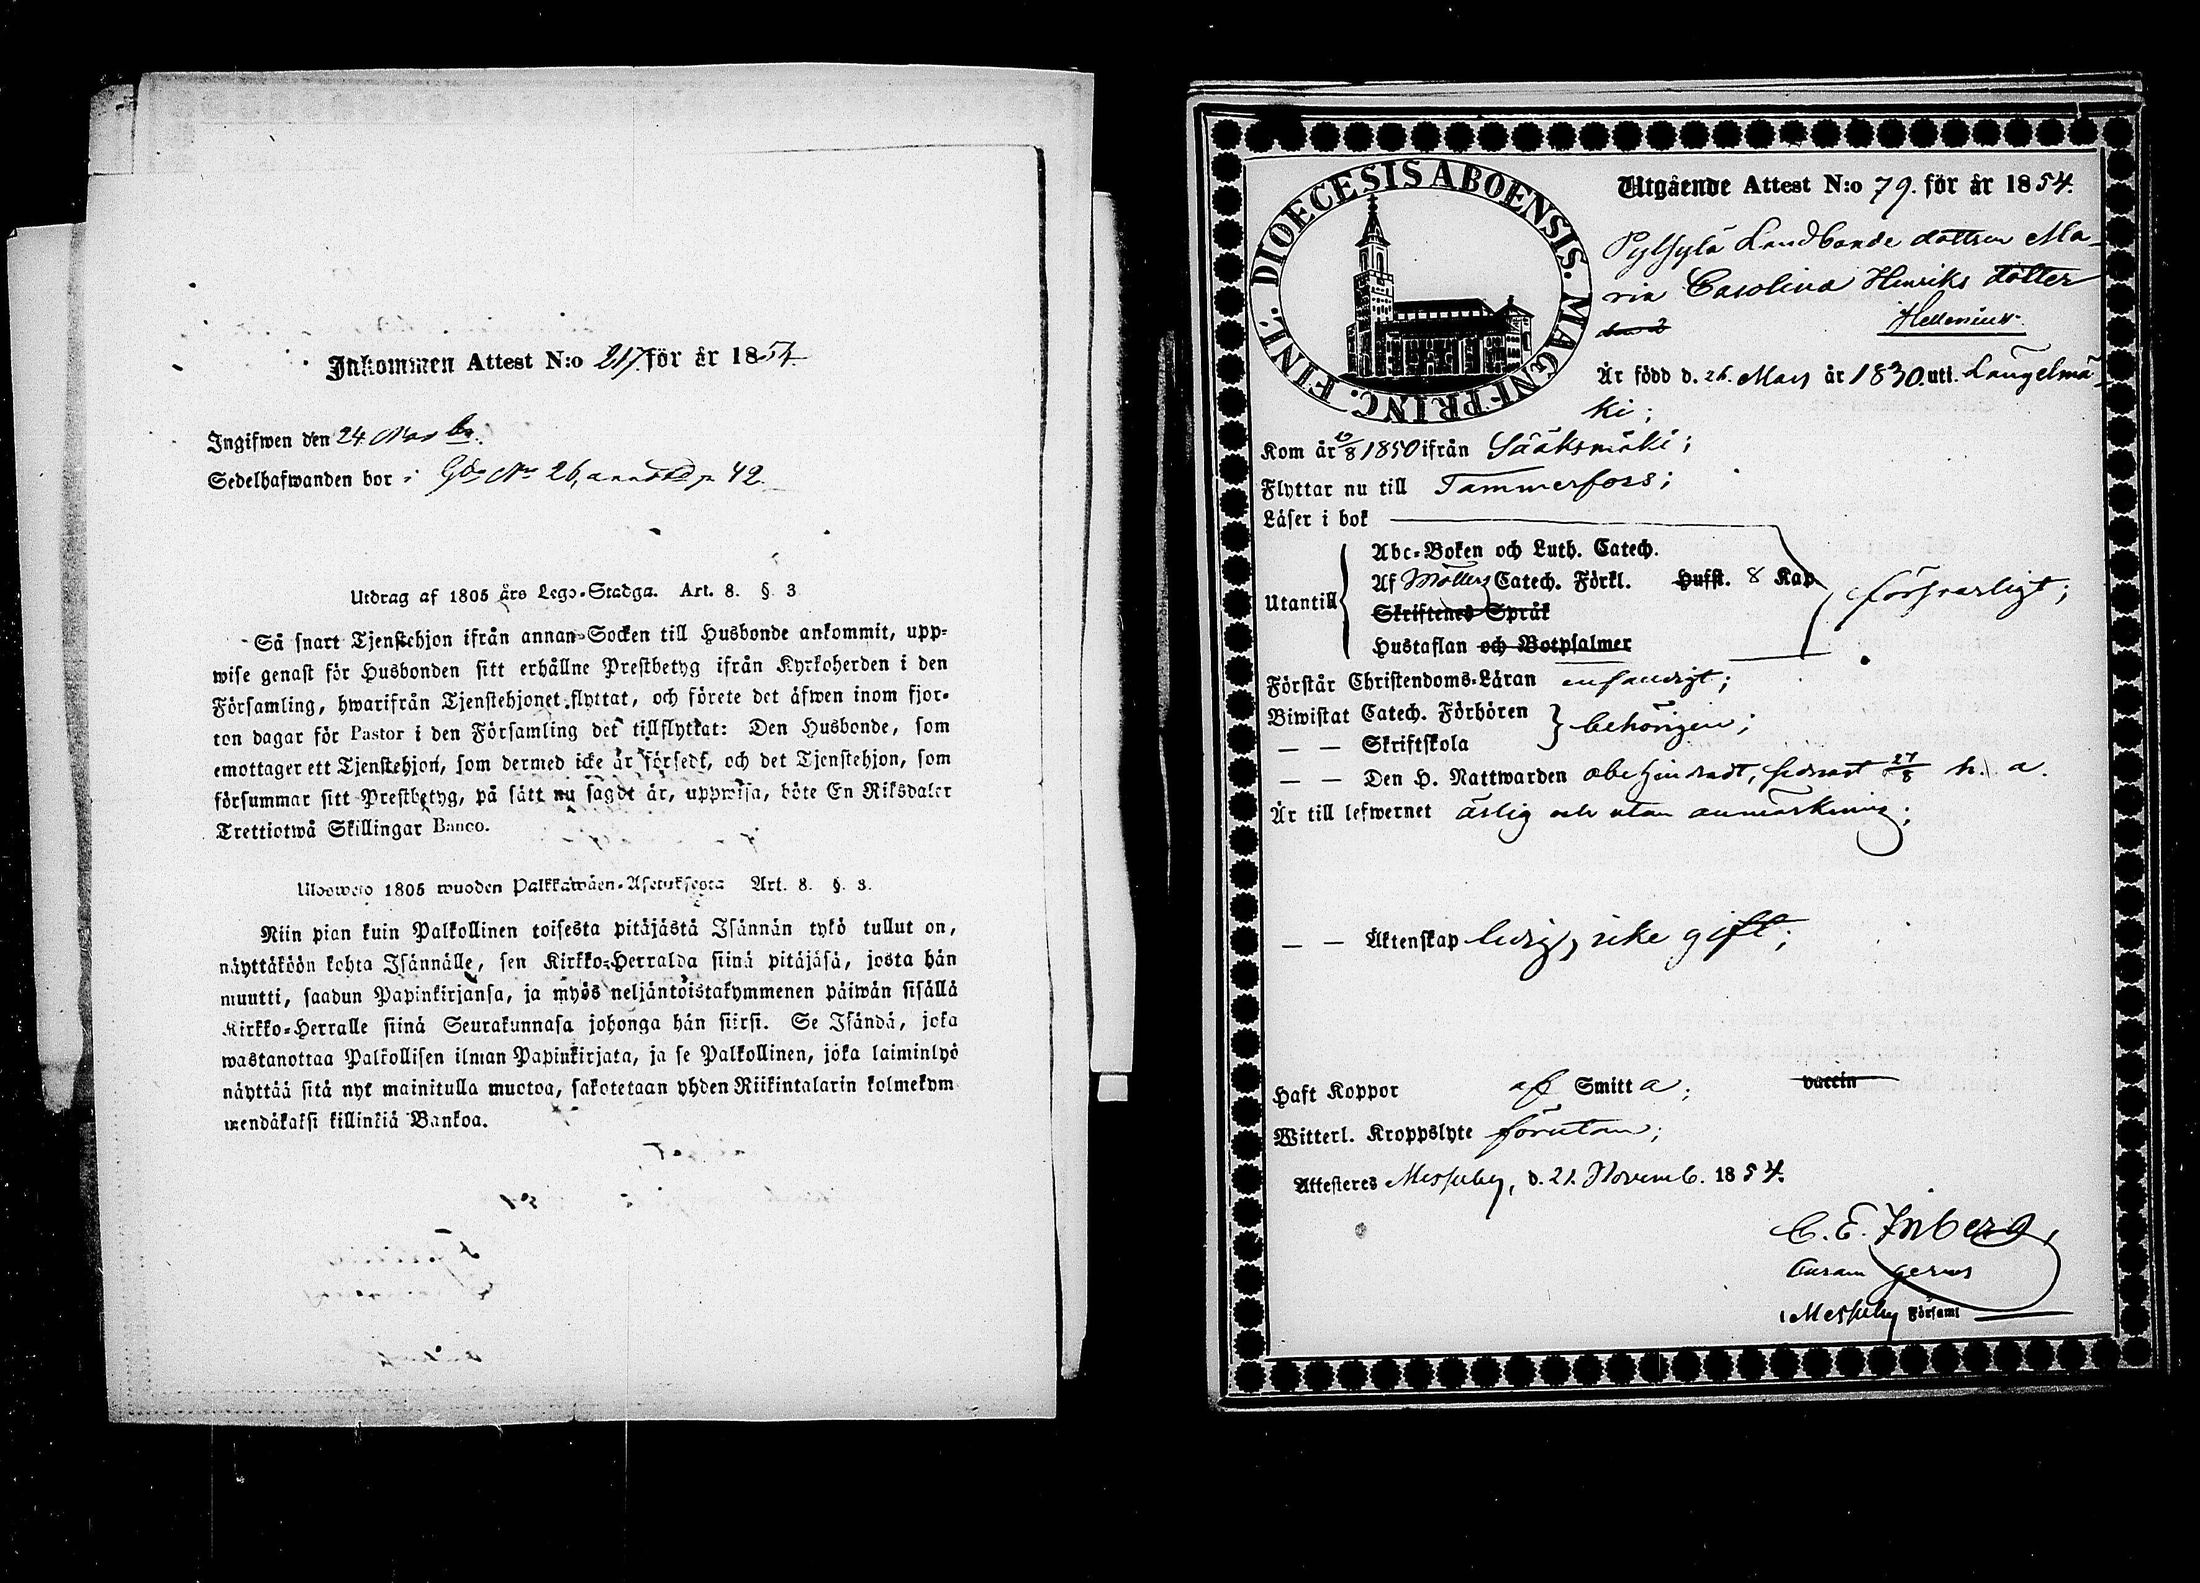 Inkommen Attest N:o 217. för år 1854.
Ingifwen den 24. Novbr.
Sedelhafwanden bor i Gd N:o 26, 42.
Utdrag af 1805 års Lego-Stadga. Art. 8. §. 3
Så snart Tjenstehjon ifrån annan Socken till Husbonde ankommit, upp-
wise genast för Husbonden sitt erhållne Prestbetyg ifrån Kyrkoherden i den
Församling, hwarifrån Tjenstehjonet flyttat, och förete det äfwen inom fjor-
ton dagar för Pastor i den Församling det tillflyttat: Den Husbonde, som
emottager ett Tjenstehjon, som dermed icke är försedt, och det Tjenstehjon, som
försummar sitt Prestbetyg, på sätt nu sagdt är, uppwisa, böte En Riksdaler
Trettiotwå Skillingar Banco.
Ulosweto 1805 wuoden Palkkawäen-Asetuksesta Art. 8. §. 3.
Niin pian kuin Palkollinen toisesta pitäjästä Isännän tykö tullut on,
näyttäköön kohta Isännälle, sen Kirkko-Herralda siinä pitäjäsä, josta hän
muutti, saadun Papinkirjansa, ja myös neljäntoistakymmenen päiwän sisällä
Kirkko-Herralle siinä Seurakunnasa johonga hän siirsi. Se Isändä, joka
wastanottaa Palkollisen ilman Papinkirjata, ja se Palkollinen, joka laiminlyö
näyttää sitä nyt mainitulla muotoa, sakotetaan yhden Riikintalarin kolmekym
mendäkaksi killinkiä Bankoa.
DIOECESIS ABOENSIS. MAGNI PRINC. FINL.
Utgående Attest N:o 79. för år 1854.
Pylsylä Landbonde dottren Ma-
ria Carolina Henriks dotter
Hellenius.
Är född d. 26. Mars år 1830. uti Längelmä-
ki;
Kom år 10/8 1850 ifrån Sääksmäki;
Flyttar nu till Tammerfors;
Läser i bok
Abc-Boken och Luth. Catech.
Utantill Af Möllers Catech. Förkl. Hufst. 8 Kap försvarligt;
Skriftenes Språk
Hustaflan och Botpsalmer
Förstår Christendoms-Läran enfaldigt;
Biwistat Catech. Förhören behörigen;
— — Skriftskola
— — Den H. Nattwarden obehindradt, sednast 27/8 h. a.
Är till lefwernet ärlig och utan anmärkning;
— — Äktenskap ledig, icke gift;
Haft Koppor af Smitta; vaccin
Witterl. Kroppslyte förutan;
Attesteres Messuby, d. 21. Novemb. 1854.
C. E. Inberg,
Curam gerens
i Messuby Församl